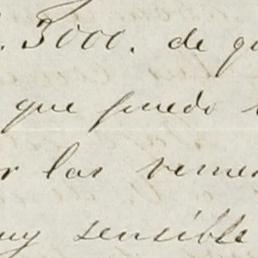 . 3000. de q
que puedo
r las reme
uy sensible